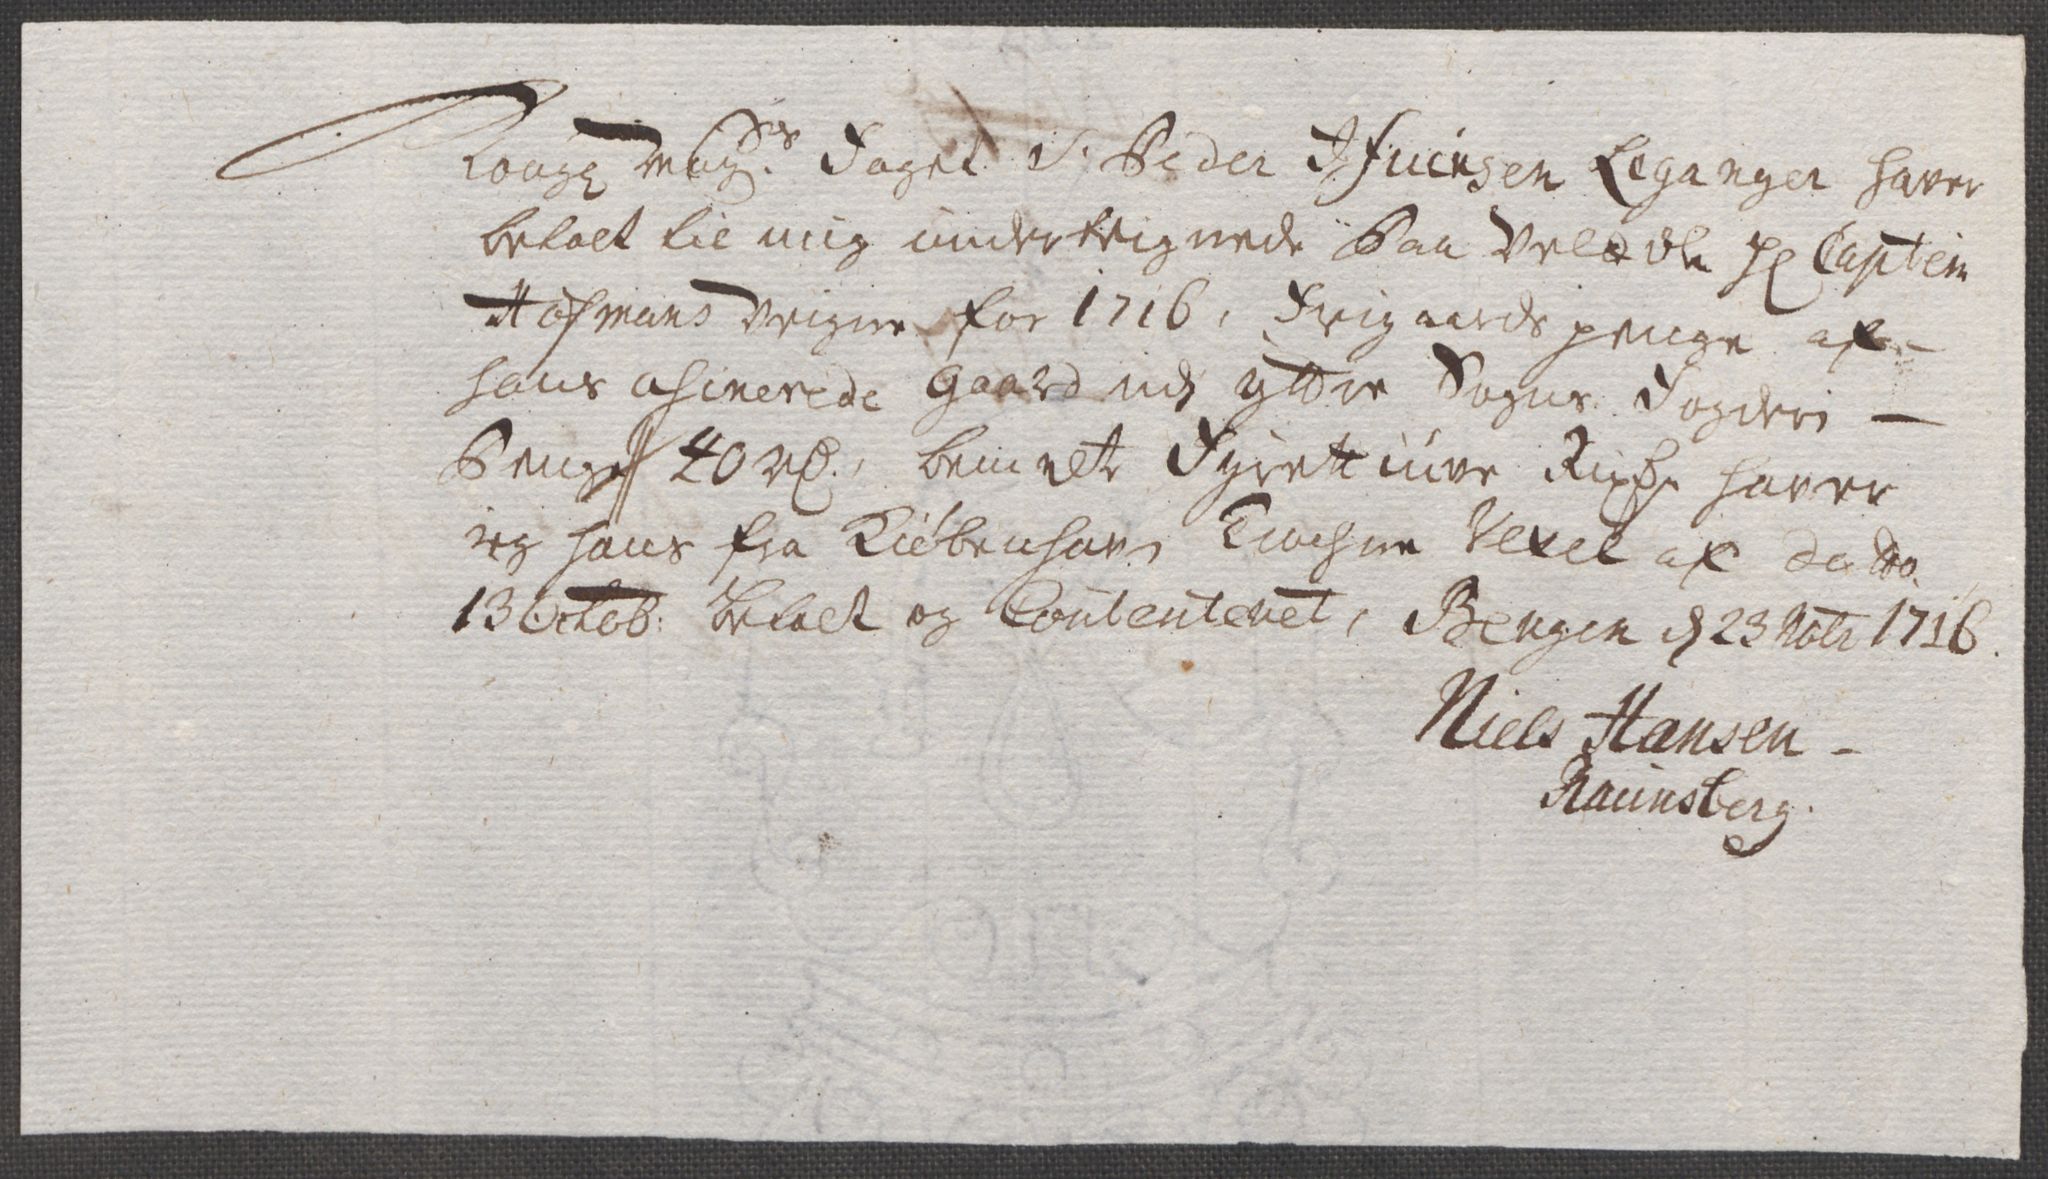 Kongl Mayts Foget S. Peder Ifuersen Leganger haver
betalt til mig underteignede Paa Velædle Hr Captein
Hofmans Veigne for 1716, Frigaards penge af
hans asinerede Gaard udj ytter Sogns Fogderi —
Penge 40 rd., bemelte Fyretiuve Rixdr haver
ieg hans fra Kiøbenhavn Trochne Vexel af datto
13 Octob: betalt og Contenteret, Bergen d 23 Nobr 1716.
Niels Hansen -
Raunsberg.